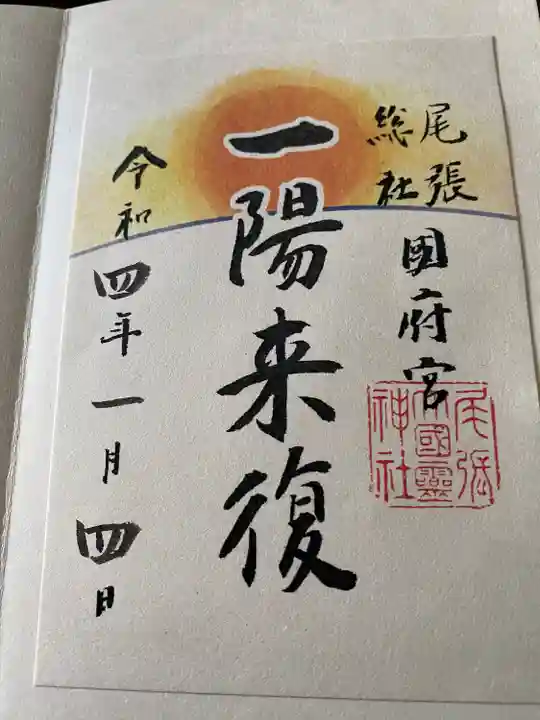 尾張
総社
国府宮
尾張
大國靈
神社
一陽来復
令和四年一月四日